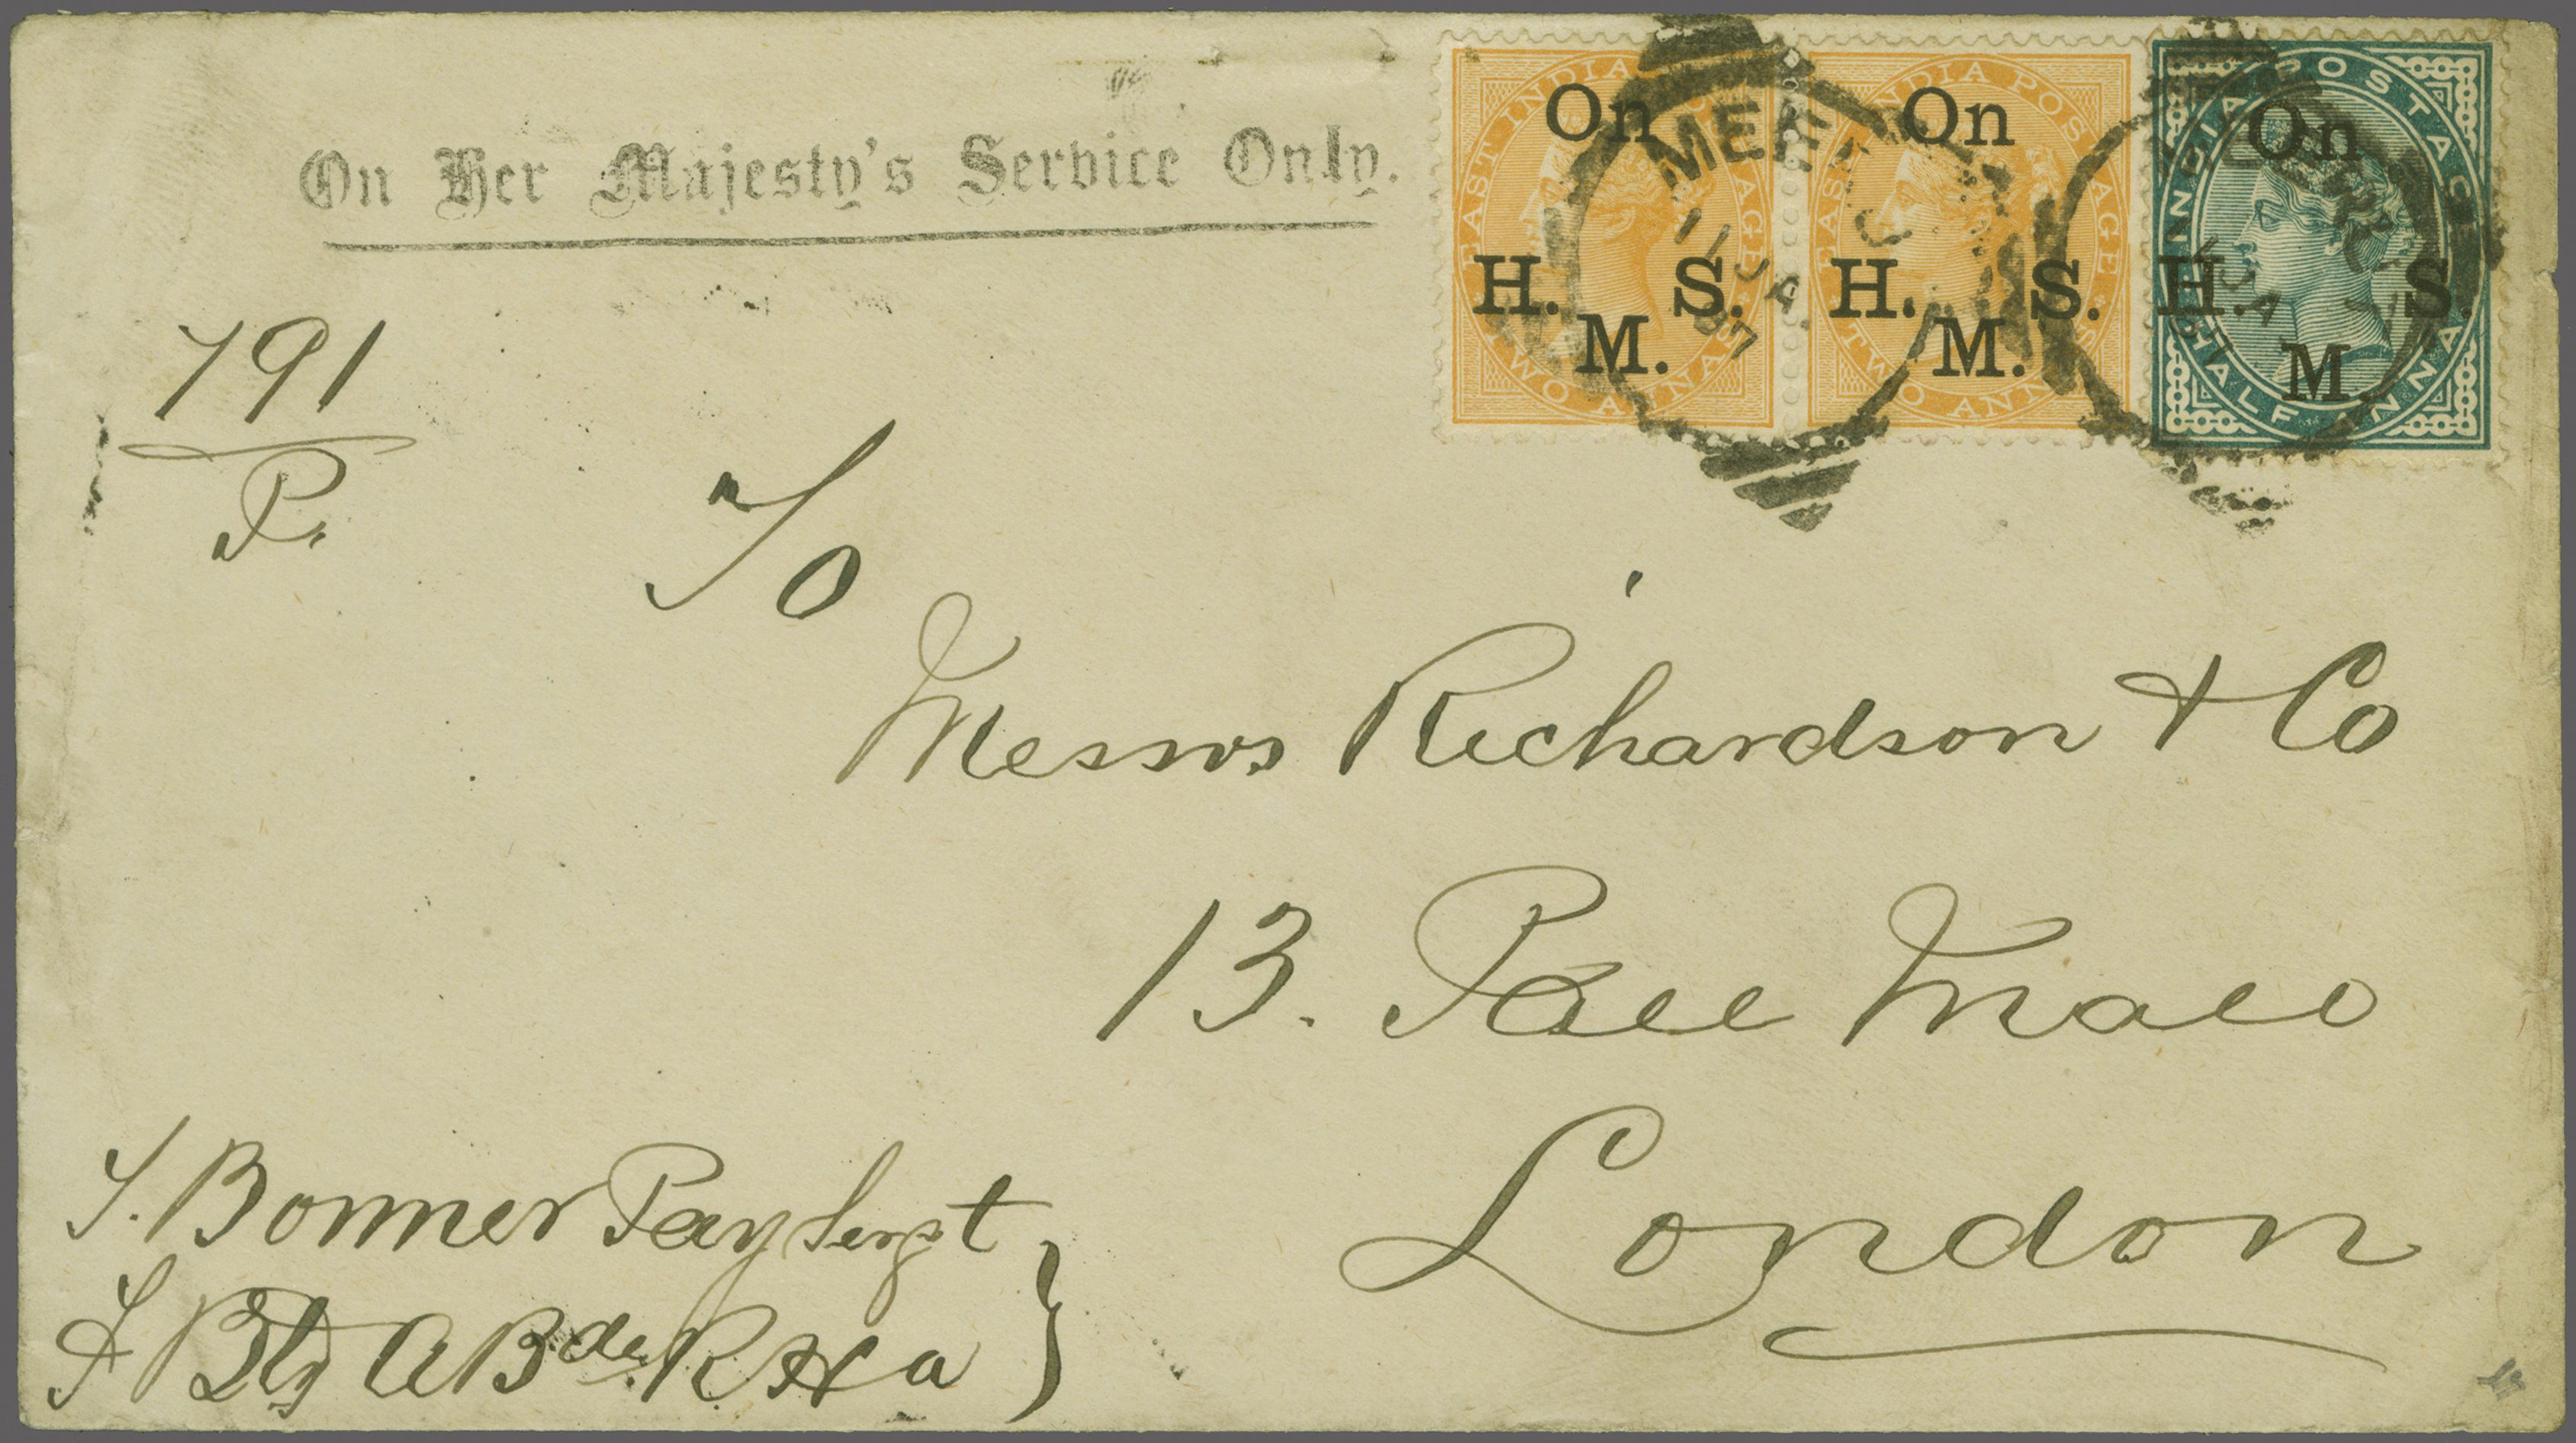 On Her Majesty's Service Only.
EAST INDIA POSTAGE
On
H. S.
M.
TWO ANNAS
EAST INDIA POSTAGE
On
H. S.
M.
TWO ANNAS
INDIA POSTAGE
On
H. S.
M.
HALF ANNA
11 JA
97
791
P.
To
Messrs Richardson & Co
13. Pall Mall
London
J. Bonner Pay Sergt
J Bty A Bde R H a